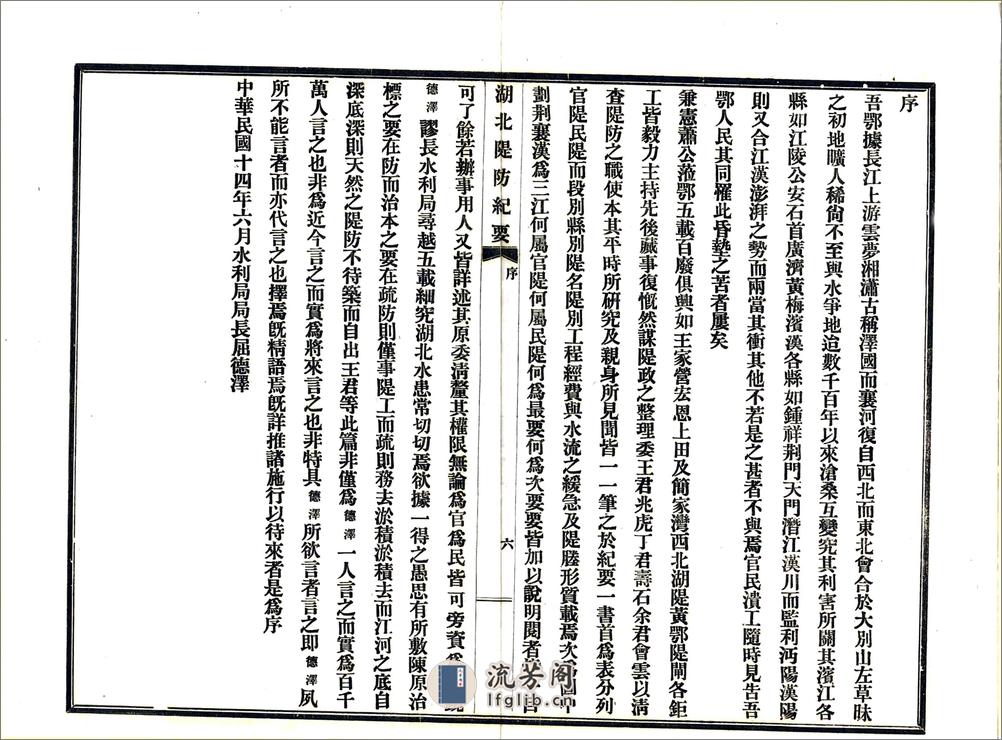 序
吾鄂據長江上游雲夢湘瀟古稱澤國而襄河復自西北而東北會合於大別山左草昧
之初地曠人稀尙不至與水爭地迨數千百年以來滄桑互變究其利害所關其濱江各
縣如江陵公安石首廣濟黃梅濱漢各縣如鍾祥荆門天門潛江漢川而監利沔陽漢陽
則又合江漢澎湃之勢而兩當其衝其他不若是之甚者不與焉官民潰工隨時見告吾
鄂人民其同罹此昏墊之苦者屢矣
兼憲蕭公蒞鄂五載百廢俱興如王家營宏恩上田及簡家灣西北湖隄黃鄂隄閘各鉅
工皆毅力主持先後蕆事復慨然謀隄政之整理委王君兆虎丁君壽石余君會雲以淸
查隄防之職使本其平時所研究及親身所見聞皆一一筆之於紀要一書首爲表分列
官隄民隄而段別縣別隄名隄別工程經費與水流之緩急及隄塍形質載焉次
劃荆襄漢爲三江何屬官隄何屬民隄何爲最要何爲次要要皆加以說明閱者
湖北隄防紀要
序
六
可了餘若辦事用人又皆詳述其原委淸釐其權限無論爲官爲民皆可旁資
德澤謬長水利局尋越五載細究湖北水患常切切焉欲據一得之愚思有所敷陳原治
標之要在防而治本之要在疏防則僅事隄工而疏則務去淤積淤積去而江河之底自
深底深則天然之隄防不待築而自出王君等此篇非僅爲德澤一人言之而實爲百千
萬人言之也非爲近今言之而實爲將來言之也非特具德澤所欲言者言之即德澤夙
所不能言者而亦代言之也擇焉旣精語焉旣詳推諸施行以待來者是爲序
中華民國十四年六月水利局局長屈德澤
流芳阁
lfglib.cn